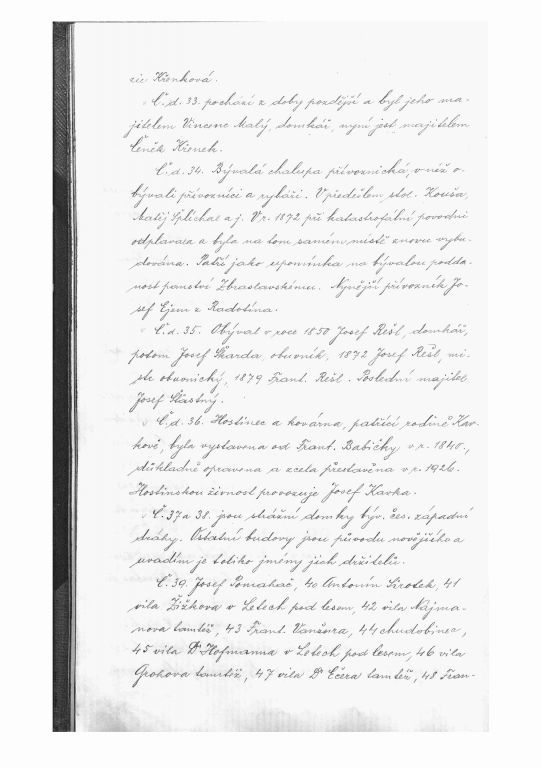 zie Křenková.
Č.d. 33. pochází z doby pozdější a byl jeho ma-
jitelem Vincenc Malý, domkář, nyní jest majitelem
Čeněk Křenek.
Č.d. 34. Bývalá chalupa přívoznická, v níž o-
bývali přívozníci a rybáři. V předešlém stol. Kouša,
Matěj Šplíchal a j. V r. 1872 při katastrofální povodni
odplavala a byla na tom samém místě znovu vybu-
dována. Patří jako upomínka na bývalou podda-
nost panství Zbraslavskému. Nynější přívozník Jo-
sef Ejem z Radotína.
Č.d. 35. Obýval v roce 1850 Josef Rešl, domkář,
potom Josef Škarda, obuvník, 1872 Josef Rešl, mi-
str obuvnický, 1879 Frant. Rešl. Poslední majitel
Josef Šťastný.
Č.d. 36. Hostinec a kovárna, patřící rodině Kav-
kově, byla vystavena od Frant. Babičky v r. 1840.,
důkladně opravena a zcela přestavěna v r. 1926.
Hostinskou živnost provozuje Josef Kavka.
Č. 37 a 38. jsou strážní domky býv. čes. západní
dráhy. Ostatní budovy jsou původu novějšího a
uvádím je toliko jmény jich držitelů.
Č. 39. Josef Pomahač, 40 Antonín Sirotek, 41
vila Žižkova v Letech pod lesem, 42 vila Najma-
nova tamtéž, 43 Frant. Vanžura, 44 chudobinec,
45 vila Dr Hofmanna v Letech pod lesem, 46 vila
Grohova tamtéž, 47 vila Dr Ečera tamtéž, 48 Fran-